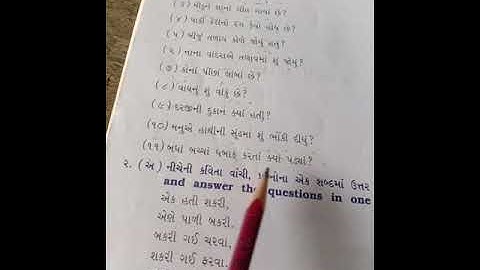 (૪) પાકી કેરીનો રંગ કેવો હોય છે?
(૫) બીજું તળાવ કોણે જોયું હતું?
(૬) નાના વાંદરાએ તળાવમાં શું જોયું?
(૭) કોનાં પીંછાં લાંબાં છે?
(૮) વાઘનું શું વાંકું છે?
(૯) દરજીની દુકાન ક્યાં હતી?
(૧૦) મનુએ હાથીની સૂંઢમાં શું ભોંકી દીધું?
(૧૧) બધાં બચ્ચાં ધબાક કરતાં ક્યાં પડ્યાં?
૨. (અ) નીચેની કવિતા વાંચી, એક શબ્દમાં ઉત્તર
and answer the questions in one
એક હતી શકરી,
એણે પાળી બકરી.
બકરી ગઈ ચરવા,
શકરી ગઈ ફરવા.